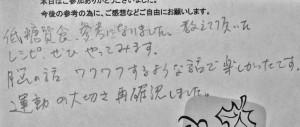 本日はご参加ありがとうございました。
今後の参考の為に、ご感想などご自由にお願いします。
低糖質食、参考になりました。教えて頂いた
レシピ、ぜひやってみます。
脳の話 ワクワクするような話で楽しかったです。
運動の大切さ再確認しました。